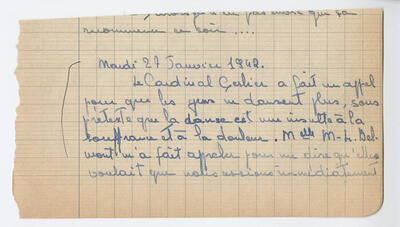 pas encore que sa
recommence ce soir ....
Mardi 27 Janvier 1942.
Le Cardinal Gerlier a fait un appel
pour que les gens ne dansent plus, sous
prétexte que la danse est une insulte à la
souffrance et à la douleur. Melle M-L. Bel-
mont m'a fait appeler pour me dire qu'elle
voulait que nous cessions immédiatement